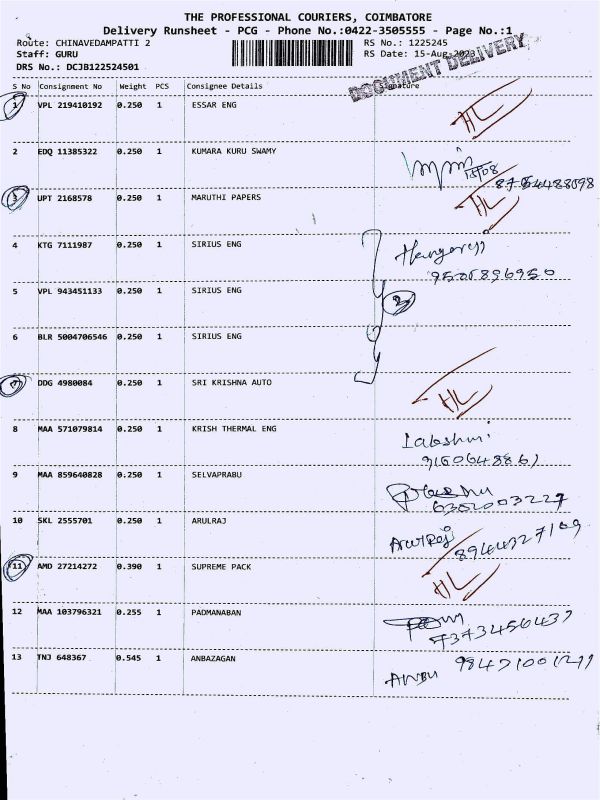 THE PROFESSIONAL COURIERS, COIMBATORE
Delivery Runsheet - PCG - Phone No.:0422-3505555 - Page No.:1
Route: CHINAVEDAMPATTI 2 RS No.: 1225245
Staff: GURU RS Date: 15-Aug-2023
DRS No.: DCJB122524501
DOCUMENT DELIVERY
S No Consignment No Weight PCS Consignee Details Signature
1 VPL 219410192 0.250 1 ESSAR ENG HL
2 EDQ 11385322 0.250 1 KUMARA KURU SWAMY
15/08
8754488098
3 UPT 2168578 0.250 1 MARUTHI PAPERS HL
4 KTG 7111987 0.250 1 SIRIUS ENG
9500896950
5 VPL 943451133 0.250 1 SIRIUS ENG 3
6 BLR 5004706546 0.250 1 SIRIUS ENG
7 DDG 4980084 0.250 1 SRI KRISHNA AUTO HL
8 MAA 571079814 0.250 1 KRISH THERMAL ENG Lakshmi
9 MAA 859640828 0.250 1 SELVAPRABU
6382003227
10 SKL 2555701 0.250 1 ARULRAJ ArulRaj
8944327109
11 AMD 27214272 0.390 1 SUPREME PACK HL
12 MAA 103796321 0.255 1 PADMANABAN
7373456437
13 TNJ 648367 0.545 1 ANBAZAGAN ANBU